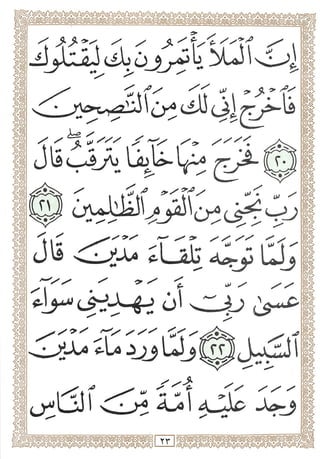 إِنَّ ٱلْمَلَأَ يَأْتَمِرُونَ بِكَ لِيَقْتُلُوكَ
فَٱخْرُجْ إِنِّي لَكَ مِنَ ٱلنَّٰصِحِينَ
٢٠ فَخَرَجَ مِنْهَا خَآئِفًا يَتَرَقَّبُۖ قَالَ
رَبِّ نَجِّنِي مِنَ ٱلْقَوْمِ ٱلظَّٰلِمِينَ ٢١
وَلَمَّا تَوَجَّهَ تِلْقَآءَ مَدْيَنَ قَالَ
عَسَىٰ رَبِّيٓ أَن يَهْدِيَنِي سَوَآءَ
ٱلسَّبِيلِ ٢٢ وَلَمَّا وَرَدَ مَآءَ مَدْيَنَ
وَجَدَ عَلَيْهِ أُمَّةً مِّنَ ٱلنَّاسِ
٢٣